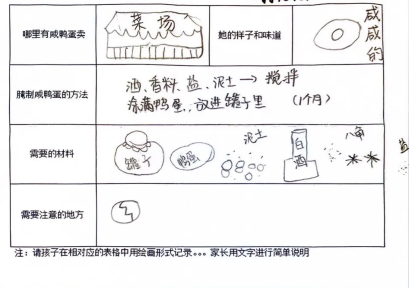 哪里有咸鸭蛋卖
菜场
她的样子和味道
咸咸的
腌制咸鸭蛋的方法
酒、香料、盐、泥土→搅拌
涂满鸭蛋,放进罐子里 (1个月)
需要的材料
罐子
鸭蛋
泥土
白酒
八角
盐
需要注意的地方
注:请孩子在相对应的表格中用绘画形式记录。。。家长用文字进行简单说明